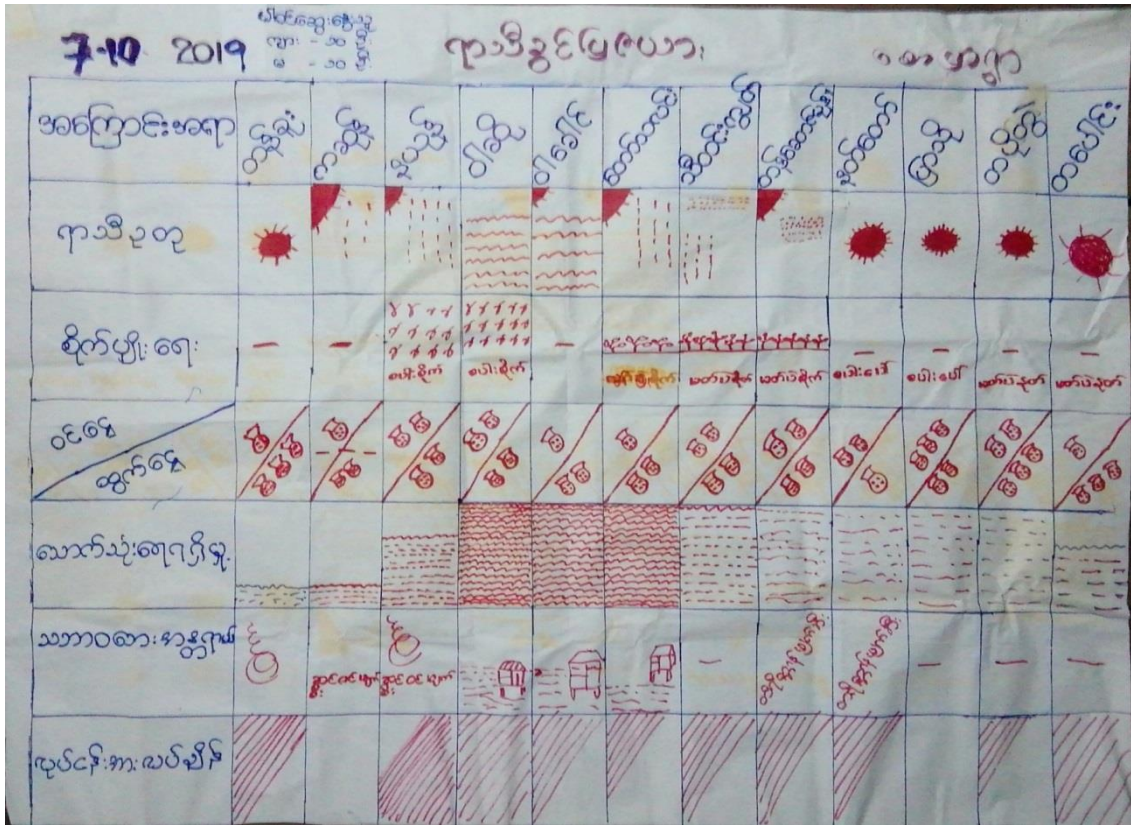 7-10 2019
ပါဝင်ဆွေးနွေးသူ
ကျား - ၁၀ ဦး
မ - ၁၀ ဦး
ရာသီခွင်ပြဇယား
အကြောင်းအရာ
တန်ခူး
ကဆုန်
နယုန်
ဝါဆို
ဝါခေါင်
တော်သလင်း
သီတင်းကျွတ်
တန်ဆောင်မုန်း
နတ်တော်
ပြာသို
တပို့တွဲ
တပေါင်း
ရာသီဥတု
စိုက်ပျိုးရေး
စပါးစိုက်
စပါးစိုက်
မတ်ပဲစိုက်
မတ်ပဲစိုက်
စပါးပေါ်
စပါးပေါ်
မတ်ပဲနုတ်
မတ်ပဲနုတ်
ဝင်ငွေ
ထွက်ငွေ
သောက်သုံးရေရရှိမှု
သဘာဝဘေးအန္တရာယ်
လုပ်ငန်းအားလပ်ချိန်